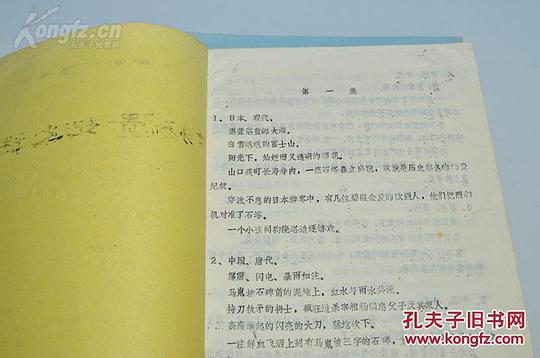 Kongfz.cn
孔夫子旧书网
第一集
1、日本、现代。
湛蓝湛蓝的大海。
白雪皑皑的富士山。
阳光下,灿烂而又透明的樱花。
山口县町长寿寺内,一座石塔矗立庭院,这就是历史悠名的杨贵
妃坟。
穿流不息的日本游客中,有几位碧眼金发的欧洲人,他们把照相
机对准了石塔。
一个小孩同狗绕塔追逐嬉戏。
2、中国、唐代。
霹雳、闪电、暴雨如注。
马嵬坡石碑前的泥地上,血水与雨水奔流。
持刀执矛的将士,疯狂追杀宰相杨国忠父子及其家人。
高高举起的闪亮的大刀,猛地砍下。
一注鲜血飞洒上刻有马嵬坡三字的石碑,
Kongfz.com
孔夫子旧书网